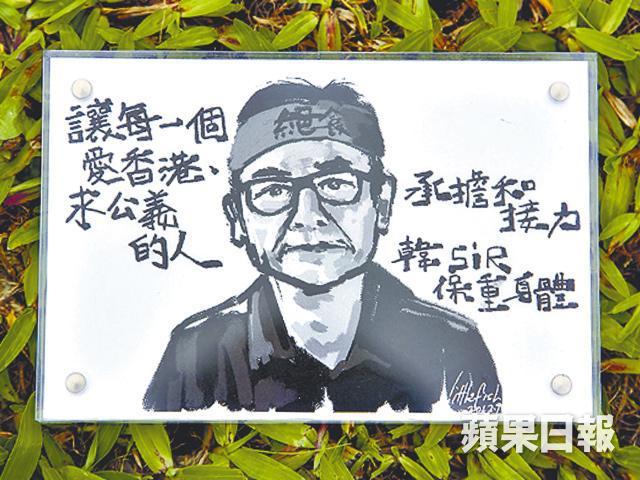 絕食
讓每一個
愛香港、
求公義
的人
承擔和
接力
韓SiR
保重身體
littlefish
蘋果日報